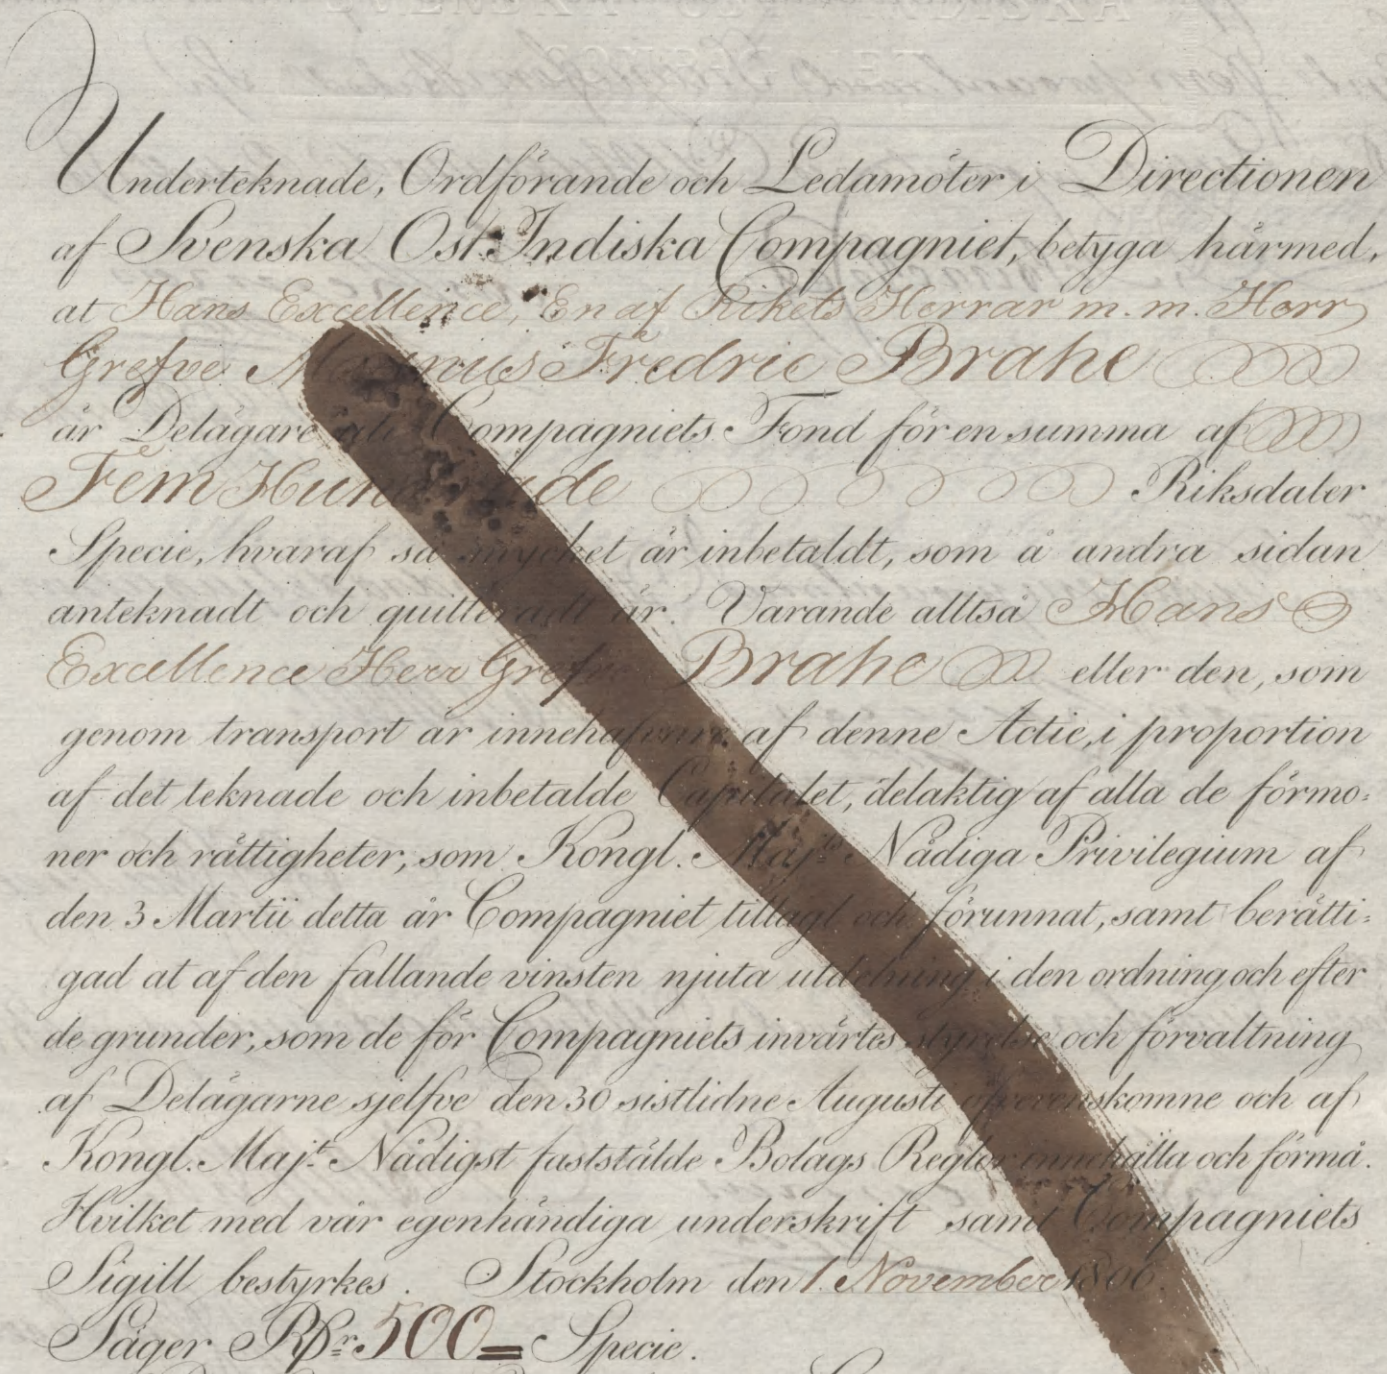 Underteknade, Ordförande och Ledamöter i Directionen
af Svenska Ost. Indiska Compagniet, betyga härmed,
at Hans Excellence, En af Rikets Herrar m. m. Herr
Grefve Magnus Fredric Brahe
är Delägare uti Compagniets Fond för en summa af
Fem Hundrade Riksdaler
Specie, hvaraf så mycket är inbetaldt, som å andra sidan
anteknadt och quitteradt är. Varande alltså Hans
Excellence Herr Grefve Brahe eller den, som
genom transport är innehafvare af denne Actie, i proportion
af det teknade och inbetalde Capitalet, delaktig af alla de förmo=
ner och rättigheter, som Kongl. Maj:ts Nådiga Privilegium af
den 3 Martii detta år Compagniet tillagt och förunnat, samt berätti=
gad at af den fallande vinsten njuta utdelning i den ordning och efter
de grunder, som de för Compagniets invärtes styrelse och förvaltning
af Delägarne sjelfve den 30 sistlidne Augusti öfverenskomne och af
Kongl. Maj:t Nådigst fastställde Bolags Reglor innehålla och förmå.
Hvilket med vår egenhändiga underskrift samt Compagniets
Sigill bestyrkes. Stockholm den 1. November 1806.
Säger Rdr 500 = Specie.